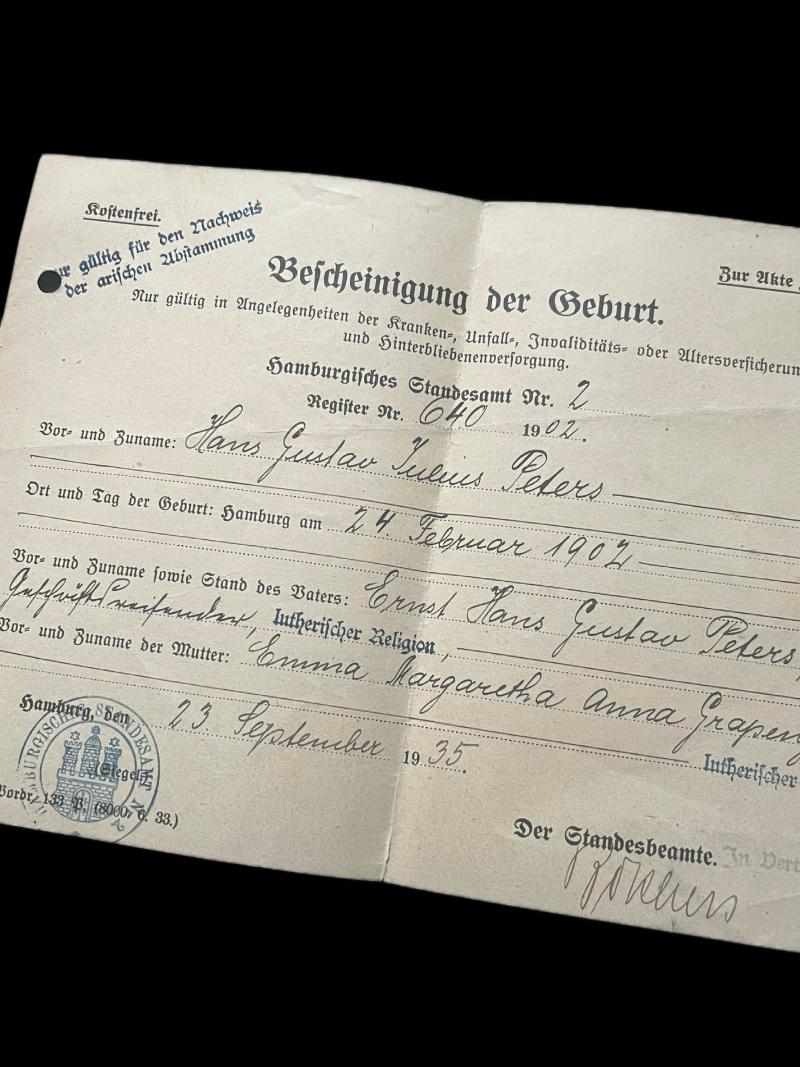 Kostenfrei.
gültig für den Nachweis
der arischen Abstammung
Zur Akte
Bescheinigung der Geburt.
Nur gültig in Angelegenheiten der Kranken-, Unfall-, Invaliditäts- oder Altersversicherun
und Hinterbliebenenversorgung.
Hamburgisches Standesamt Nr. 2
Register Nr. 640 1902.
Vor- und Zuname: Hans Gustav Julius Peters
Ort und Tag der Geburt: Hamburg am 24. Februar 1902
Vor- und Zuname sowie Stand des Vaters: Ernst Hans Gustav Peters,
Geschäftsreisender, lutherischer Religion,
Vor- und Zuname der Mutter: Emma Margaretha Anna Grapen
lutherischer
Hamburg, den 23 September 1935.
(Siegel)
Vordr. 133 P. (8000. 6. 33.)
Der Standesbeamte. In Vert